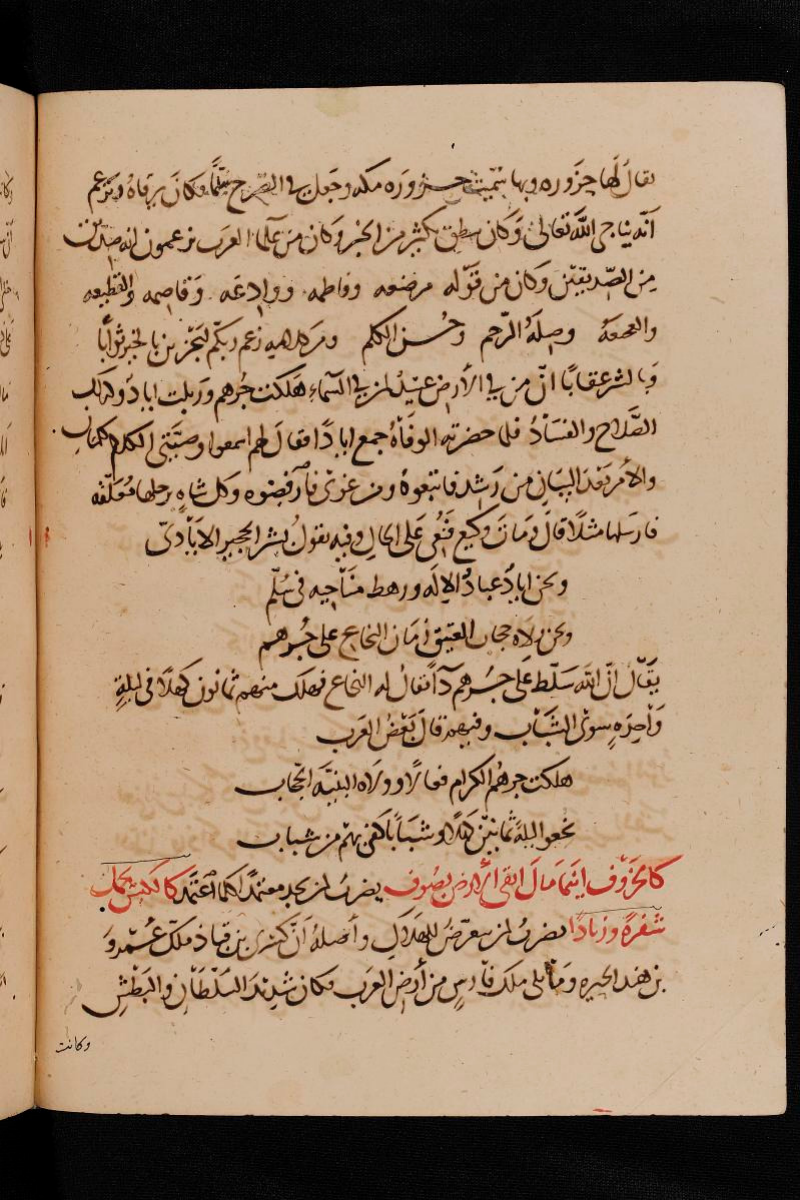 يقال لها حزوره وبها سميت حزوره مكه وجعل في الصرح سلّمًا فكان يرقاهُ ويزعم
أنّه يناجي الله تعالى وكان ينطق بكثير من الخبر وكان من علماء العرب يزعمون انه صديق
من الصّديقين وكان من قوله مرضعه وفاطمه ووادعه وقاصمه والقطيعه
والفجعة وصلة الرّحم وحُسن الكلم زعم ربكم ليجزين بالخير ثوابًا
وبالشر عقابًا انّ من في الأرض عبيدٌ لمن في السّماء هلكت جُرهم وربلت اياد وكذلك
الصّلاح والفسادُ فلما حضرته الوفاة جمع ايادًا فقال لهم اسمعوا وصيّتي الكلام كلمتان
والأمر بَعدَ البيان من رَشد فاتبعوهُ ومن غوى فارفضوه وكل شاةٍ برجلها معلّقه
فارسلها مثلًا قال ومات وكيع فنُعى على الجبال وفيه يقولُ بشر بن الحجير الايادىّ
ونحن ايادٌ عبادُ الإله ورهط مناجيه في سُلّم
ونحن ولاه حجاب العتيق زمان النخاع على جُرهم
يقال انّ الله سلّط على جرهم داءً يقالُ له النخاع فهلك منهم ثمانون كهلًا في ليلةٍ
واحده سوى الشّباب وفيهم قال بعض العرب
هلكت جرهُم الكرام فعالًا وولاه البنيّة الحجاب
نخعوا ليلةً ثمانين كهلًا وشبابًا كفى بهم من شباب
كالخروف اينما مال اتقى الأرض بصُوف يضربُ لمن يجد معتمدًا كلما اعتمد كالكبش يحمل
شفرةً وزنادًا يضربُ لمن يتعرّضُ للهلاك وأصلهُ أنّ كسرى بن قباذ ملّك عَمرو
بن هند الحيره وما يلي ملك فارس من أرض العرب فكان شديد السّلطان والبطش
وكانت